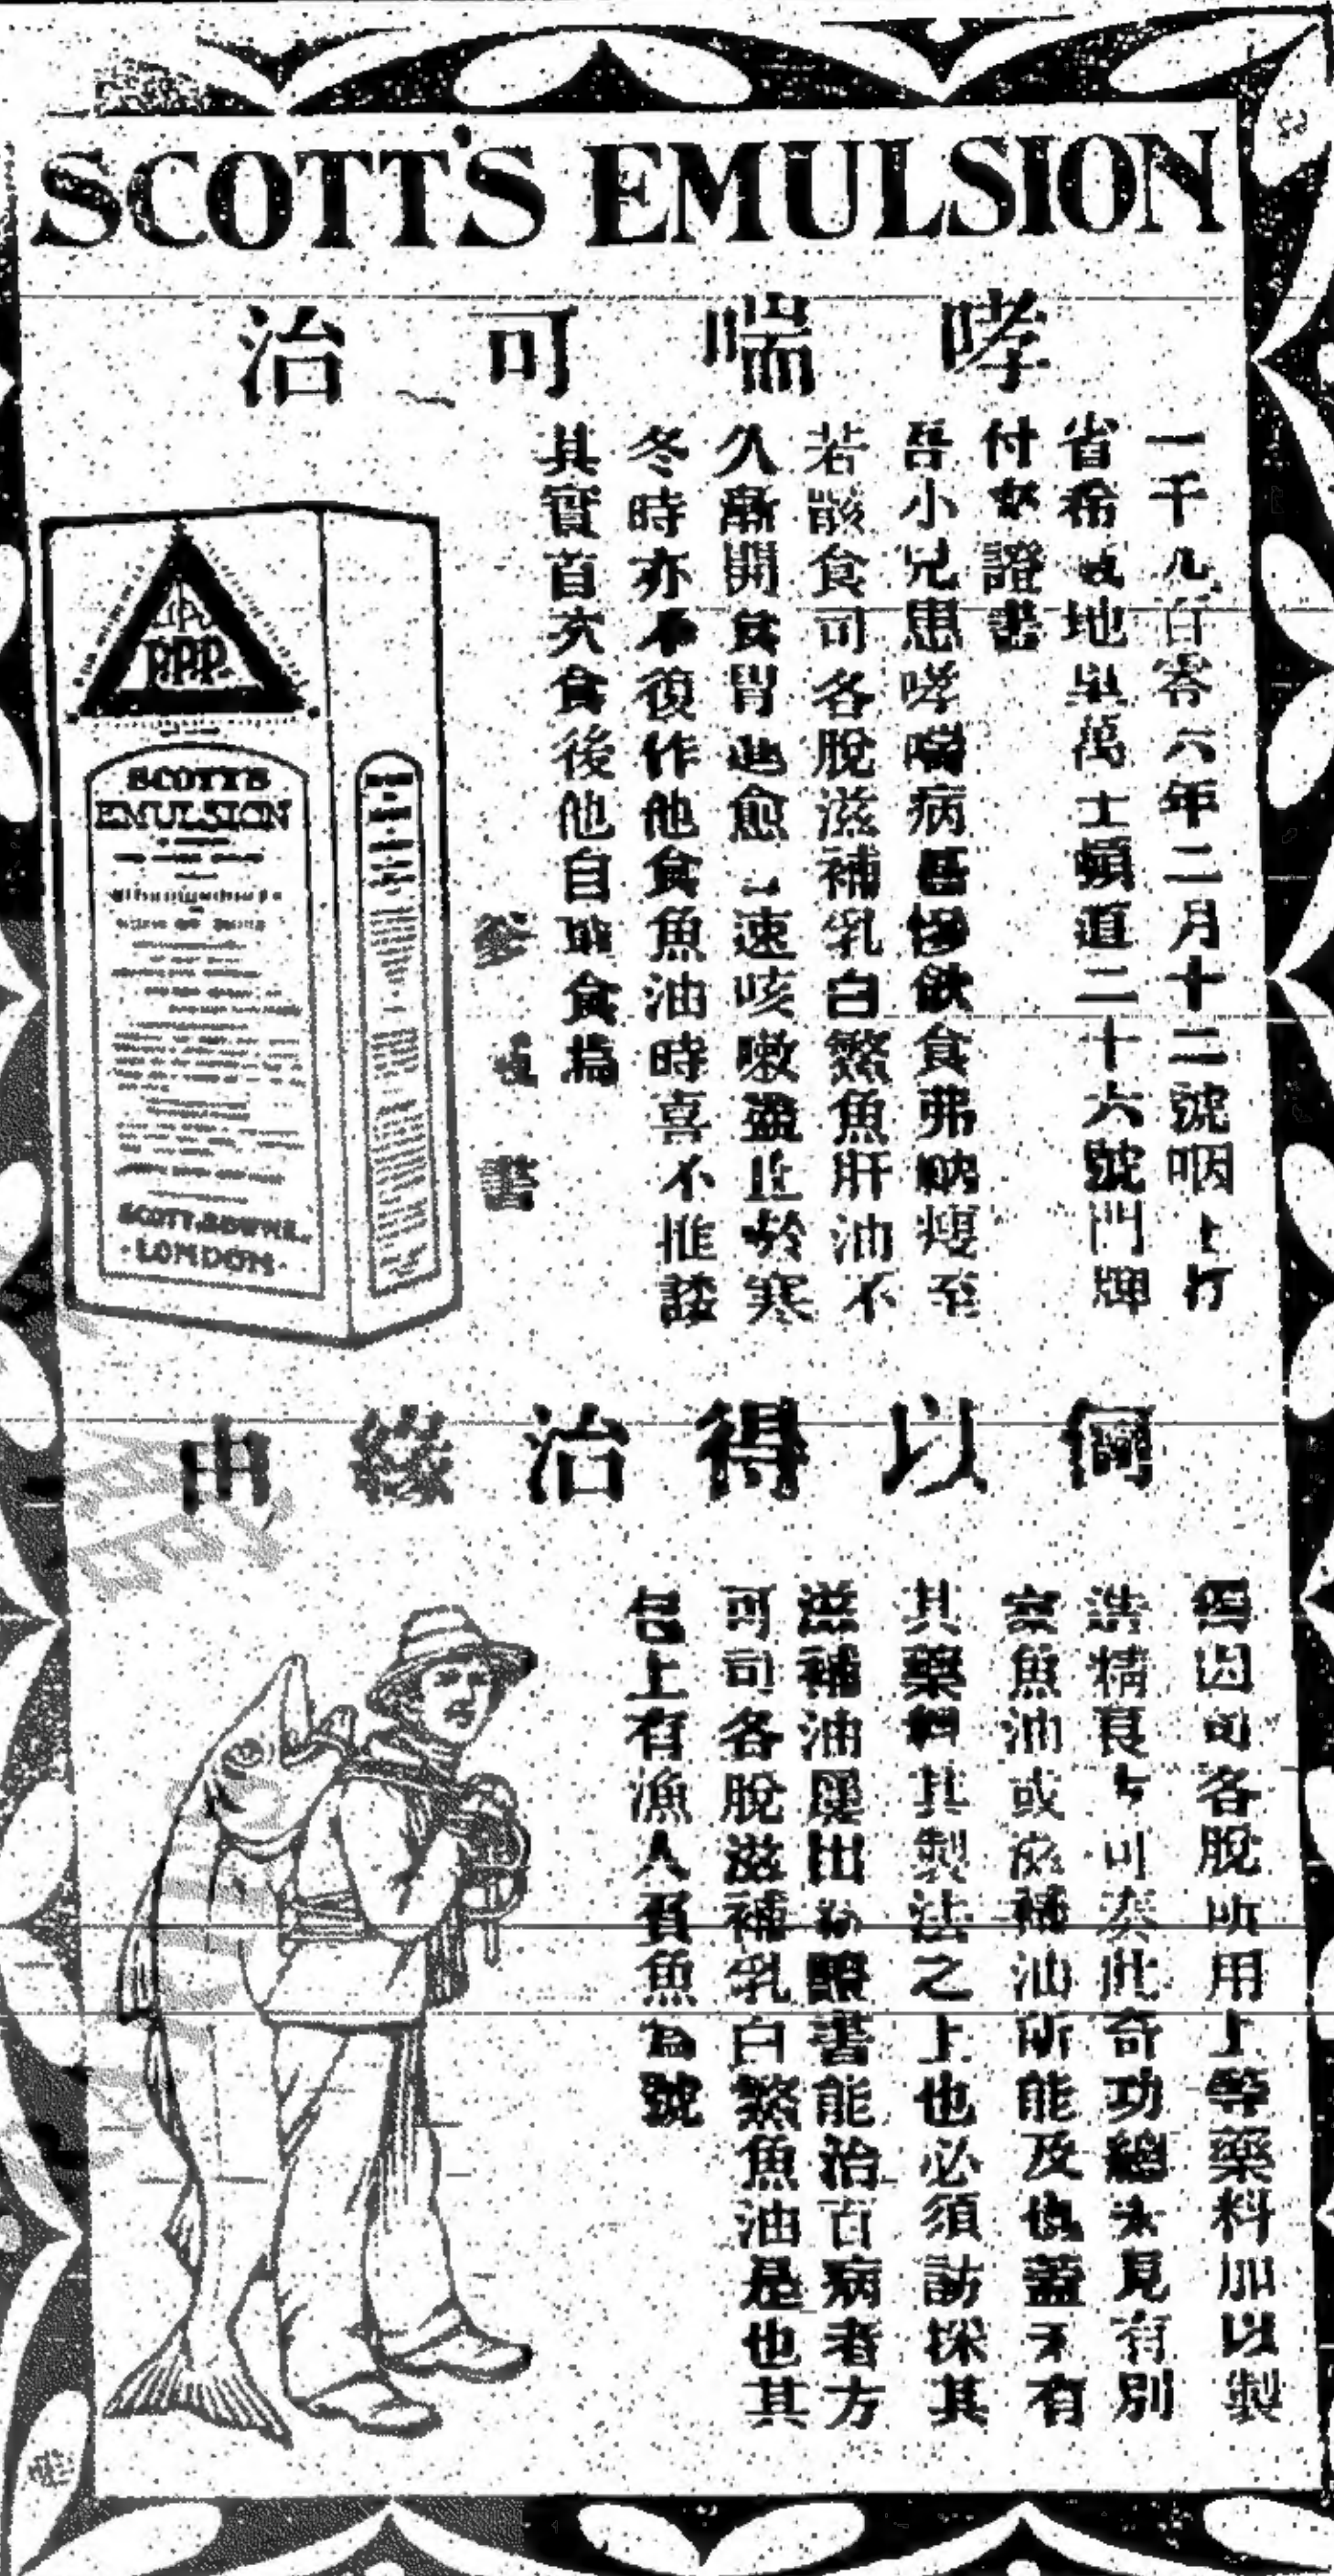 SCOTT'S EMULSION
哮喘可治
一千九百零六年二月十二號咽上打
省希 地 萬士頓道二十六號門牌
付來證書
吾小兒患哮喘病甚慘飲食弗納瘦至
若骸食司各脫滋補乳白鰵魚肝油不
久漸開食胃 愈 速咳嗽盡止於寒
冬時亦不復作他食魚油時喜不推諉
其實首次食後他自 食為
書
SCOTT'S
EMULSION
SCOTT & BOWNE
LONDON
PPP
何以得治緣由
因司各脫所用上等藥料加以製
造精良方可奏此奇功總未見有別
家魚油或 補油所能及也蓋未有
其藥料其製法之上也必須訪採其
滋補油屢出 證書能治百病者方
可司各脫滋補乳白鰵魚油是也其
包上有漁人負魚為號